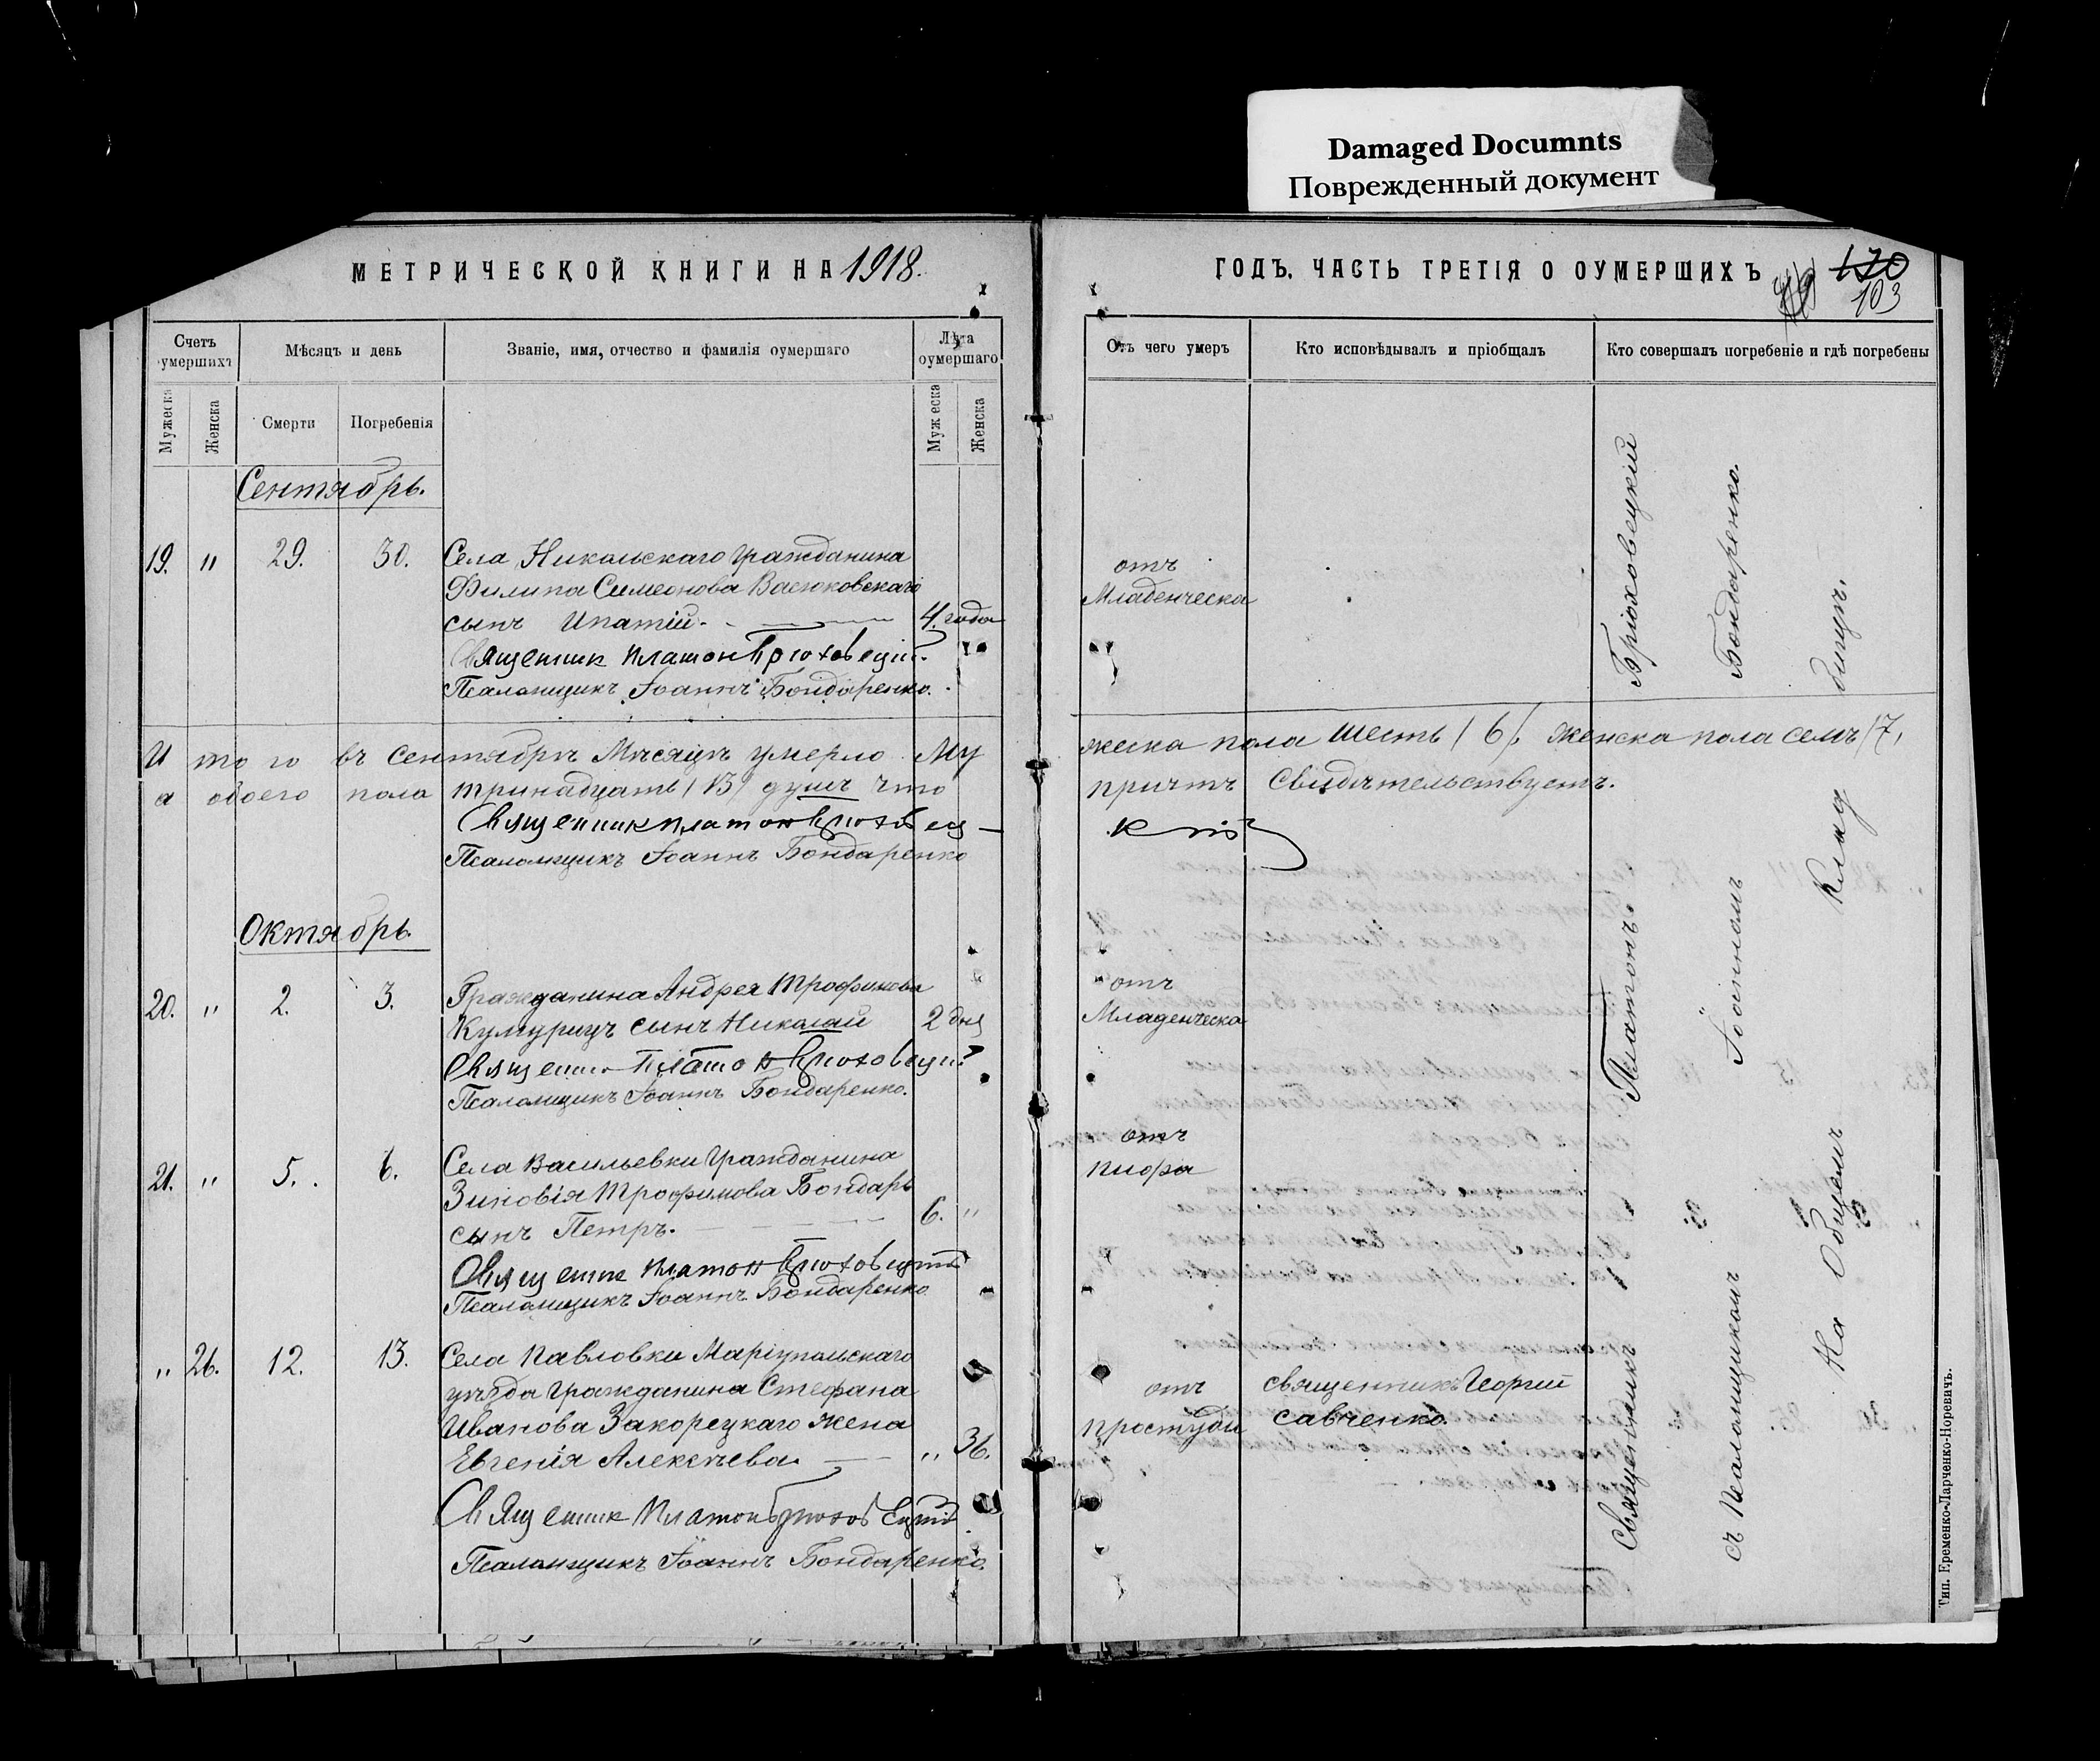 Damaged Documnts
Поврежденный документ
МЕТРИЧЕСКОЙ КНИГИ НА 1918.
Счетъ умершихъ
Мѣсяцъ и день
Званіе, имя, отчество и фамилія оумершаго
Лѣта оумершаго
Мужеска
Женска
Смерти
Погребенія
Муж еска
Женска
Сентябрь.
19. " 29. 30. Села Никольскаго гражданина
Филипа Симеонова Васюковскаго
сынъ Ипатій. 4. года
Священник Платон Брюховецкій.
Псаломщикъ Іоаннъ Бондаренко.
Итого въ сентябрѣ Мѣсяцѣ умерло Му
а обоего пола тринадцать /13/ душъ что
Священник Платон Брюховец
Псаломщикъ Іоаннъ Бондаренко
Октябрь.
20. " 2. 3. Гражданина Андрея Трофимова
сынъ Николай 2 дня
Священник Платон Брюховецкій
Псаломщикъ Іоаннъ Бондаренко.
21. " 5. 6. Села Васильевки гражданина
Зиновія Трофимова Бондарь
сынъ Петръ. 6. "
Священник Платон Брюховецкій
Псаломщикъ Іоаннъ Бондаренко
" 26. 12. 13. Села Павловки Маріупольскаго
уѣзда гражданина Стефана
Иванова Закорецкаго жена
Евгенія Алексѣева. " 36.
Священник Платонъ Брюховецкій
Псаломщикъ Іоаннъ Бондаренко.
ГОДЪ. ЧАСТЬ ТРЕТІЯ О ОУМЕРШИХЪ
170
103
Отъ чего умеръ
Кто исповѣдывалъ и пріобщалъ
Кто совершалъ погребеніе и гдѣ погребены
отъ
Младенческа
жеска пола шесть /6/, женска пола семь /7,
причтъ свидѣтельствуетъ.
отъ
Младенческа
отъ
тифа
отъ
простуды
священникъ Георгій
Савченко.
Священникъ Платонъ Брюховецкий
съ Псаломщикомъ Іоанномъ Бондаренко.
На Общемъ Клад бищѣ.
Тип. Еременко-Ларченко-Норевичъ.